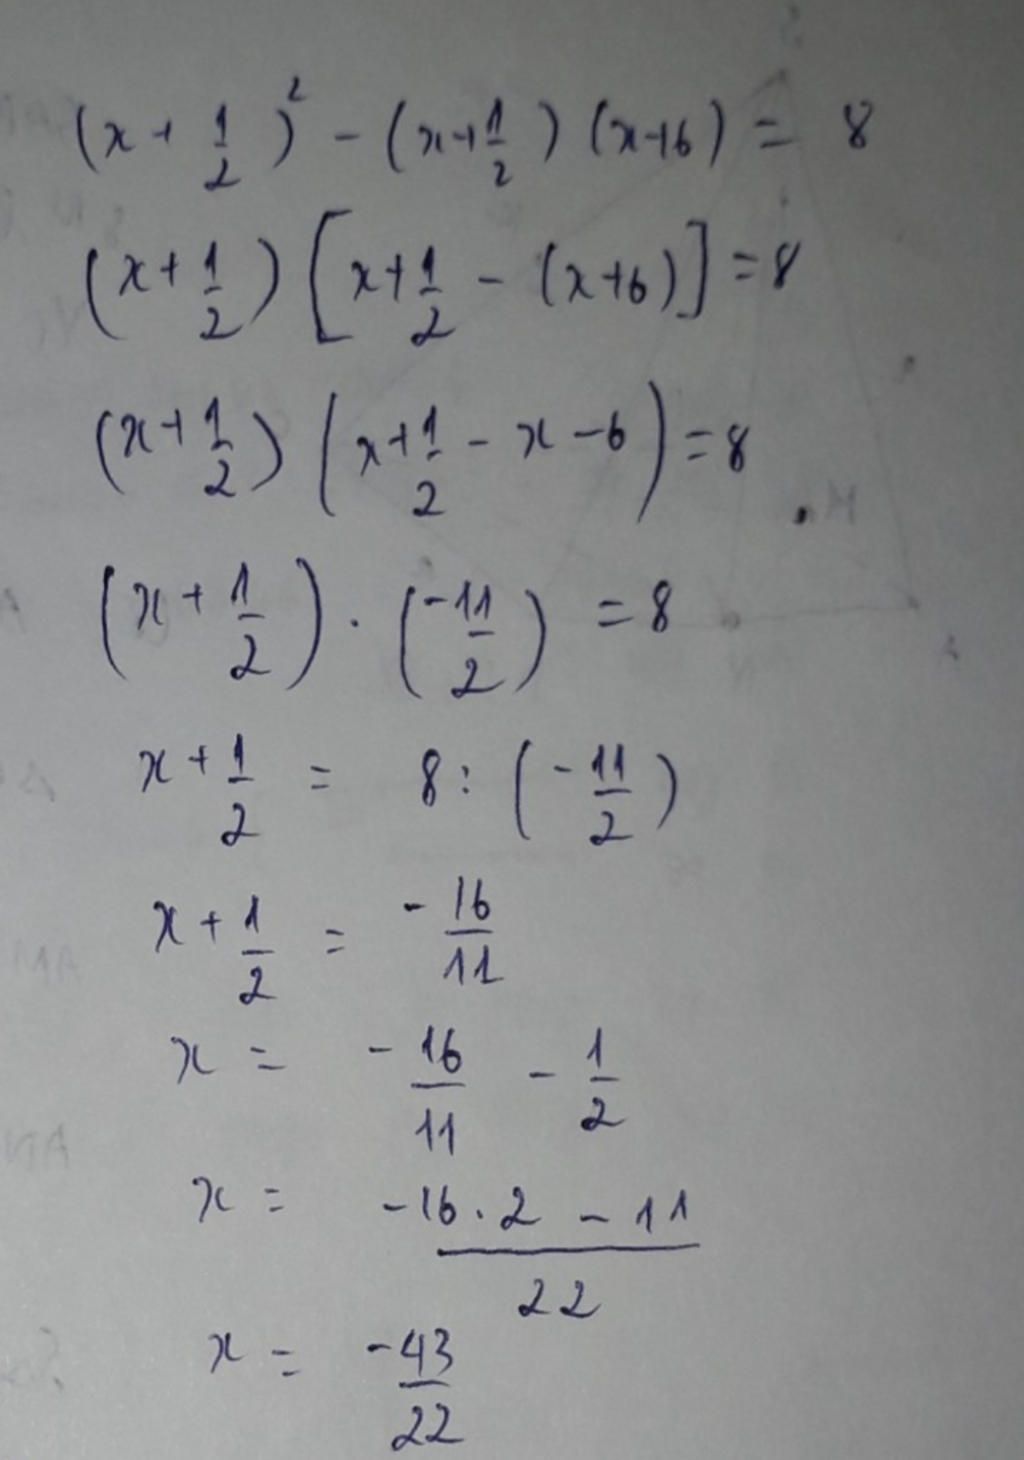 (x + 1/2)² - (x + 1/2)(x+6) = 8
(x + 1/2)[x + 1/2 - (x+6)] = 8
(x + 1/2)(x + 1/2 - x - 6) = 8
(x + 1/2) . (-11/2) = 8
x + 1/2 = 8 : (-11/2)
x + 1/2 = -16/11
x = -16/11 - 1/2
x = (-16.2 - 11)/22
x = -43/22